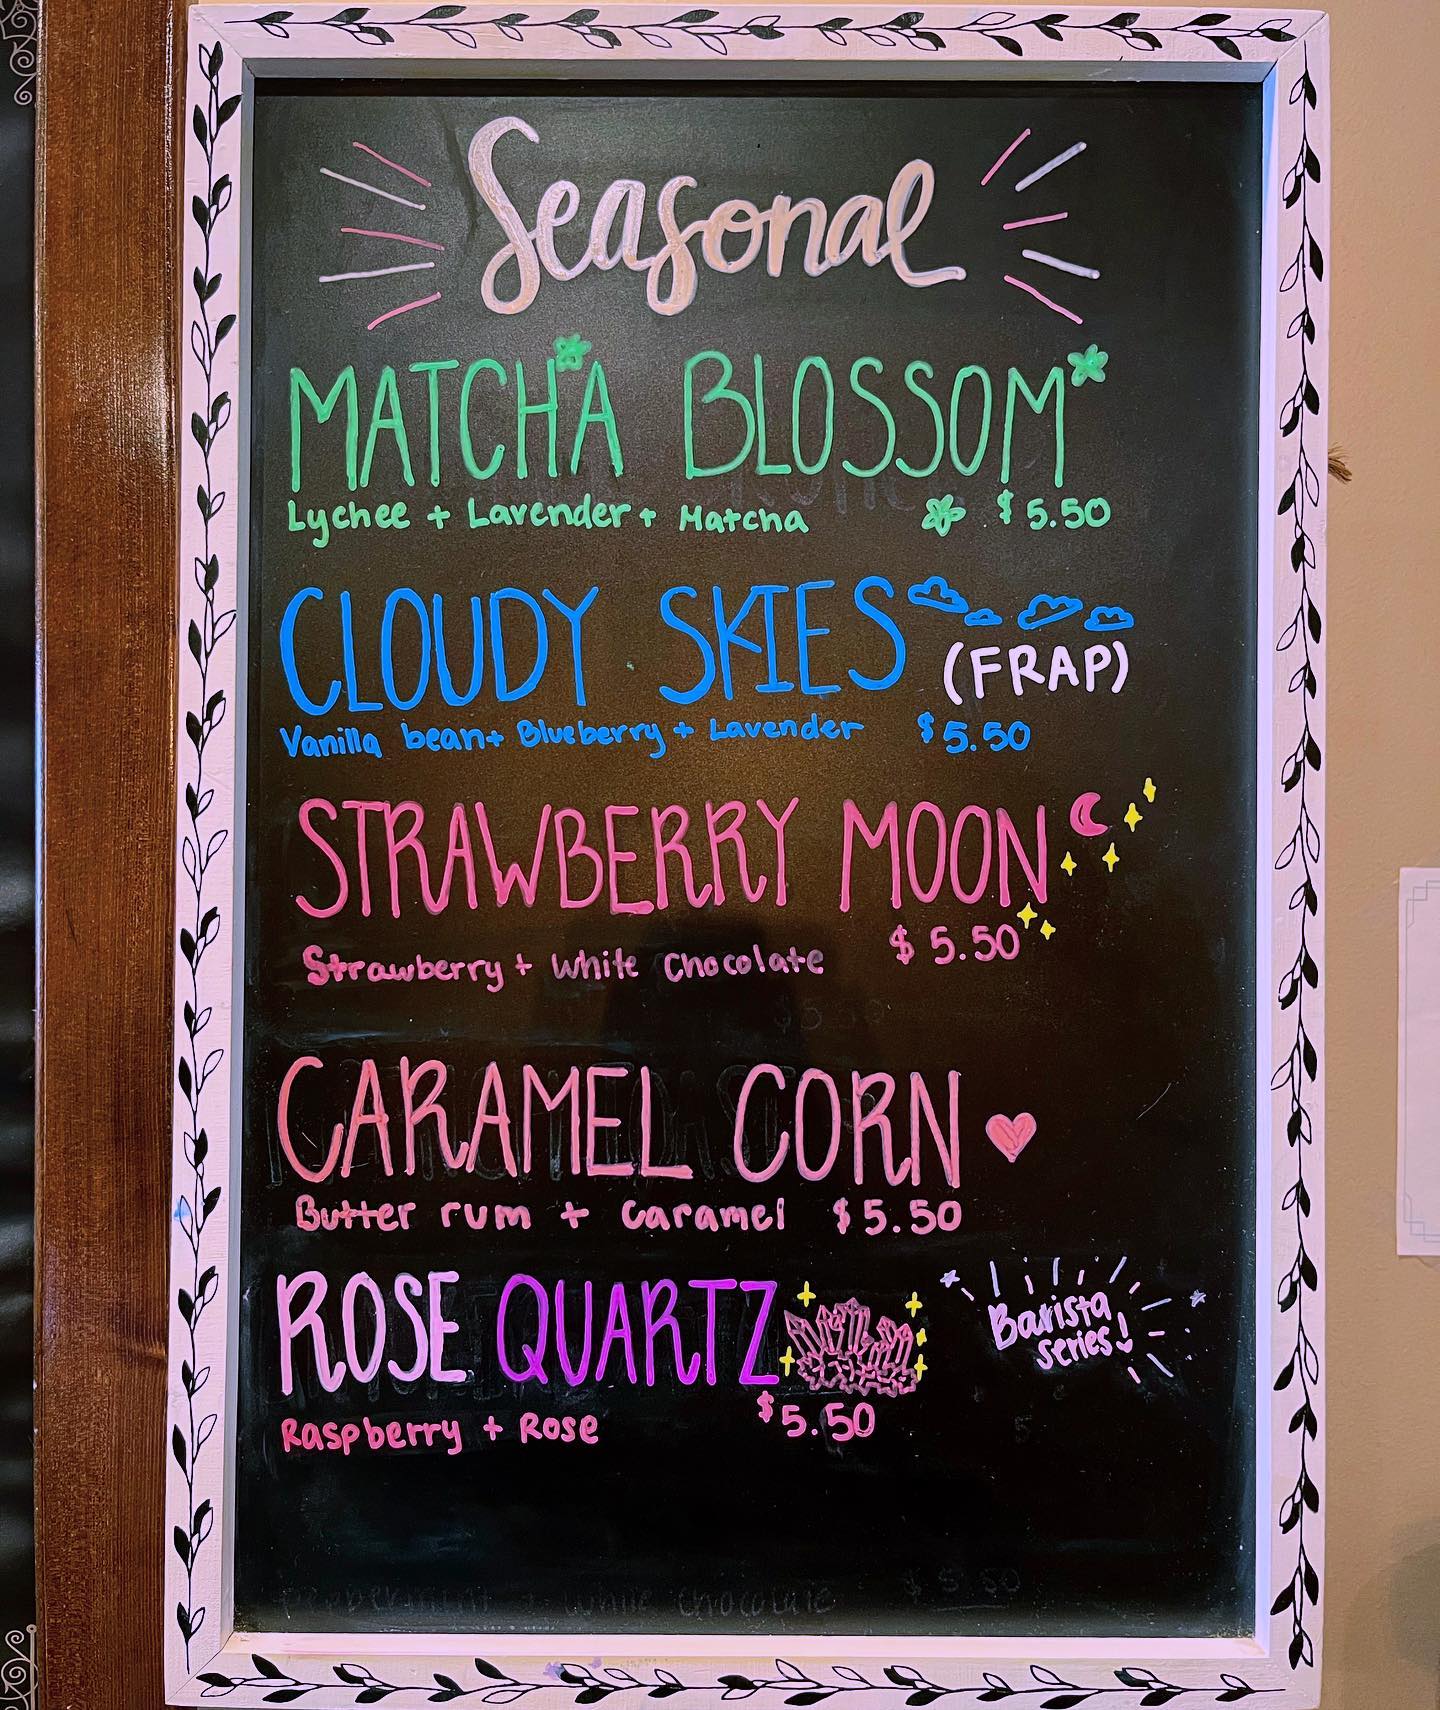 Seasonal
MATCHA BLOSSOM
Lychee + Lavender + Matcha $5.50
CLOUDY SKIES
(FRAP)
Vanilla bean + Blueberry + Lavender $5.50
STRAWBERRY MOON
Strawberry + White Chocolate $5.50
CARAMEL CORN
Butter rum + Caramel $5.50
ROSE QUARTZ
Barista
series!
Raspberry + Rose $5.50
peppermint + White chocolate $5.50